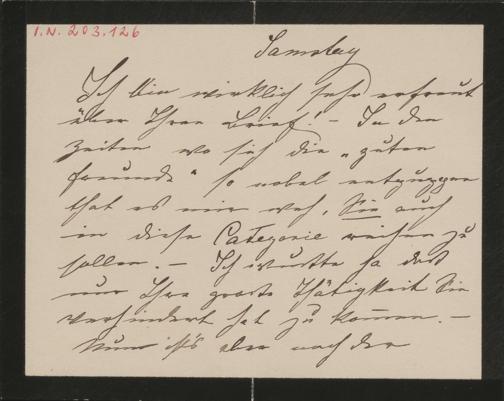 I.N. 203.126
Samstag
Ich bin wirklich sehr erfreut
über Ihren Brief! – In den
Zeiten wo sich die „guten
Freunde“ so nobel entpuppen
that es mir weh, Sie auch
in diese Categorie reihen zu
sollen. – Ich wusste ja daß
nur Ihre große Thätigkeit Sie
verhindert hat zu kommen. –
Nun ist's aber nach der